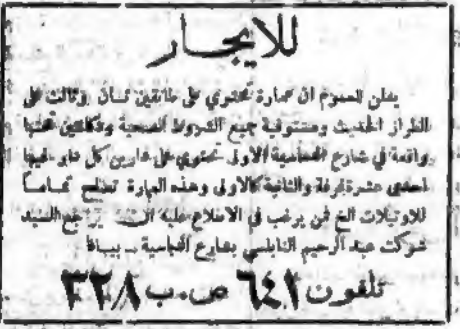 للايجار
يعلن للعموم ان عمارة تحتوي على طابقين ثان وثالث على
الطراز الحديث ومستوفية جميع الشروط الصحية ودكاكين تحتها
واقعة في شارع العباسية الاولى تحتوي على طابقين كل طابق
احدى عشرة غرفة والثانية كالاولى وهذه العمارة تصلح تماماً
للاوتيلات الخ فمن يرغب في الاطلاع عليه يراجع السيد
شوكت عبد الرحيم النابلسي بشارع العباسية ـ بيافا
تلفون ٦٤١ ص.ب ٣٢٨